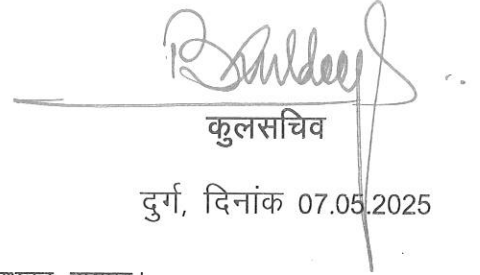 कुलसचिव
दुर्ग, दिनांक 07.05.2025